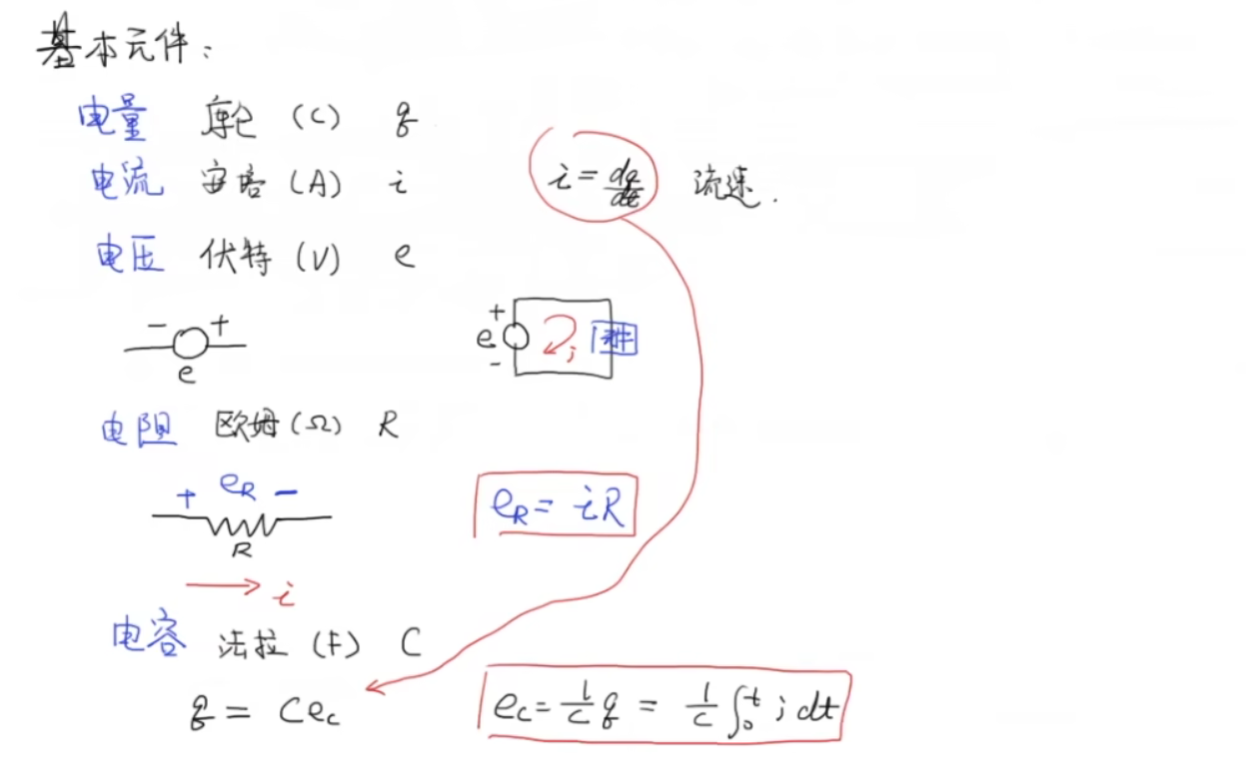 基本元件：
电量 库仑 (C) q
电流 安培 (A) i i = dq/dt 流速.
电压 伏特 (V) e
- + e
+ e - i 元件
电阻 欧姆 (Ω) R
+ eR -
R
eR = iR
i
电容 法拉 (F) C
q = CeC
eC = 1/C q = 1/C ∫₀ᵗ i dt